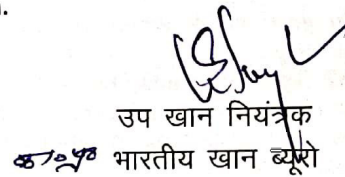 उप खान नियंत्रक
भारतीय खान ब्यूरो